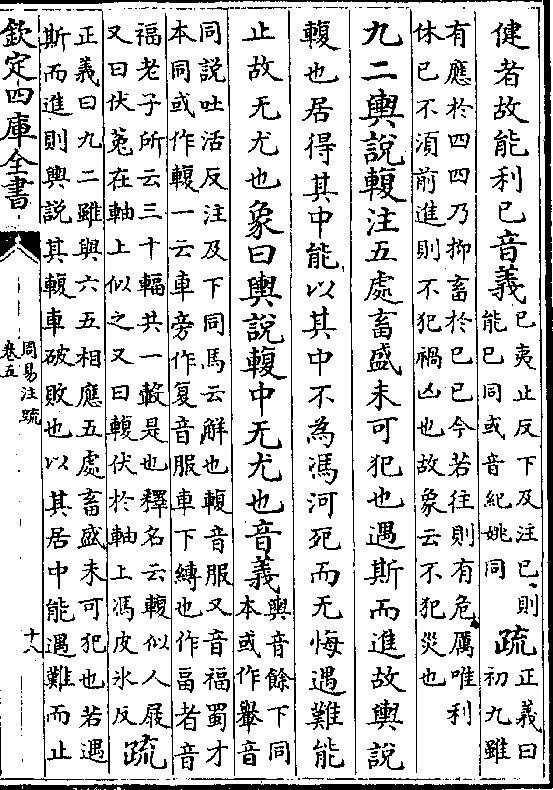 健者故能利已音義已夷止反下及注已則
能已同或音紀姚同疏正義曰
初九雖
有應於四四乃抑畜於已已今若往則有危厲唯利
休已不須前進則不犯禍凶也故象云不犯災也
九二輿說輹注五處畜盛未可犯也遇斯而進故輿說
輹也居得其中能以其中不為馮河死而无悔遇難能
止故无尤也象曰輿說輹中无尤也音義輿音餘下同
本或作轝音
同說吐活反注及下同馬云解也輹音服又音福蜀才
本同或作輻一云車旁作复音服車下縛也作畐者音
福老子所云三十輻共一轂是也釋名云輹似人屐
又曰伏菟在軸上似之又曰輹伏於軸上馮皮氷反疏
正義曰九二雖與六五相應五處畜盛未可犯也若遇
斯而進則輿說其輹車破敗也以其居中能遇難而止
欽定四庫全書
周易注疏
卷五
十六